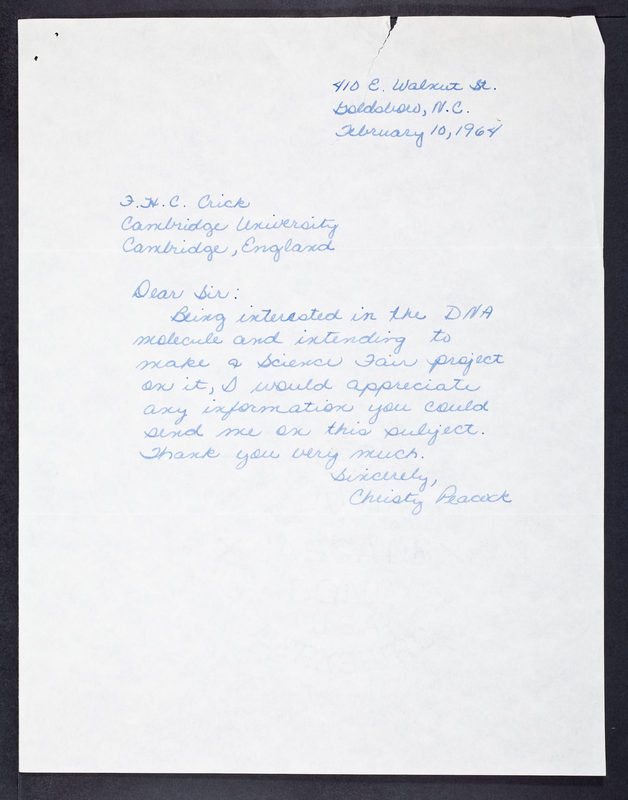 410 E. Walnut St.
Goldsboro, N.C.
February 10, 1964
F.H.C. Crick
Cambridge University
Cambridge, England
Dear Sir:
Being interested in the DNA
molecule and intending to
make a Science Fair project
on it, I would appreciate
any information you could
send me on this subject.
Thank you very much.
Sincerely,
Christy Peacock